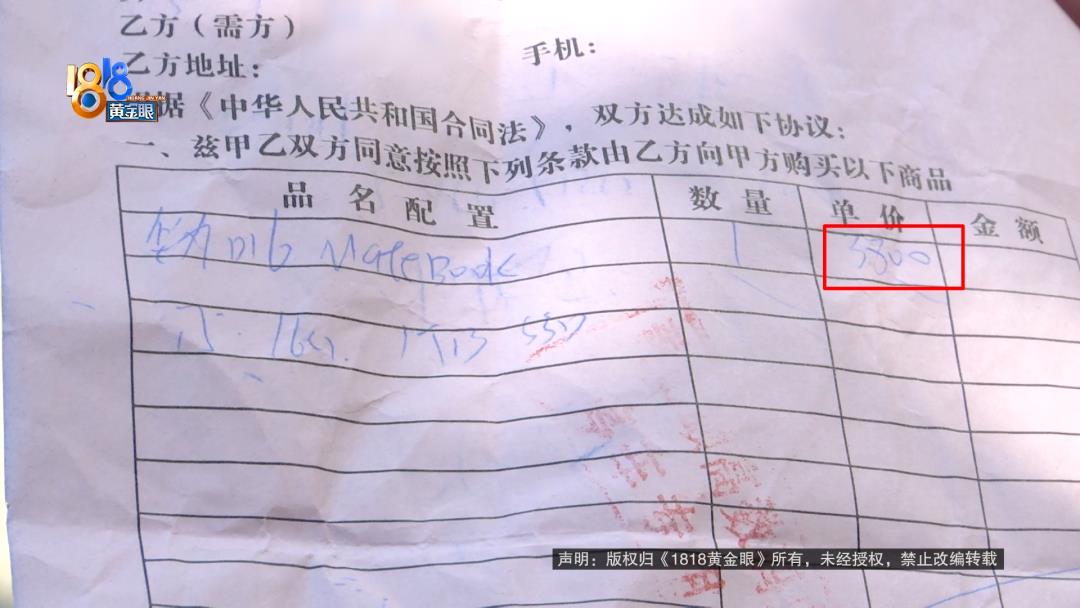 乙方（需方）
手机：
乙方地址：
1818
HUANG JIN YAN
黄金眼
据《中华人民共和国合同法》，双方达成如下协议：
一、兹甲乙双方同意按照下列条款由乙方向甲方购买以下商品
品名配置 数量 单价 金额
华为D16 MateBook 1 5800
i5. 16G. 1TB SSD
声明：版权归《1818黄金眼》所有，未经授权，禁止改编转载